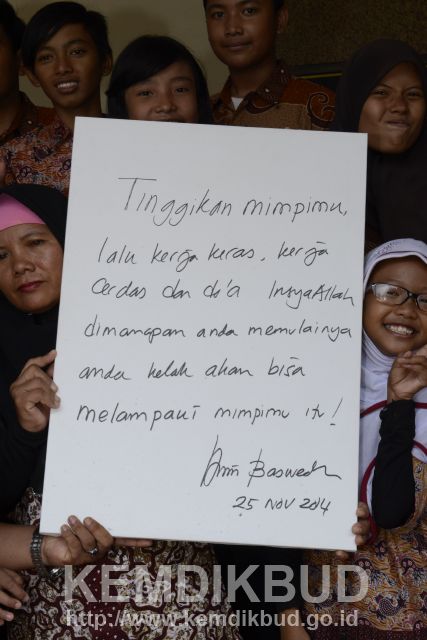 Tinggikan mimpimu,
lalu kerja keras, kerja
cerdas dan do'a InsyaAllah
dimanapan anda memulainya
anda kelak akan bisa
melampaui mimpimu itu!
Baswedan
25 NOV 2014
KEMDIKBUD
http://www.kemdikbud.go.id